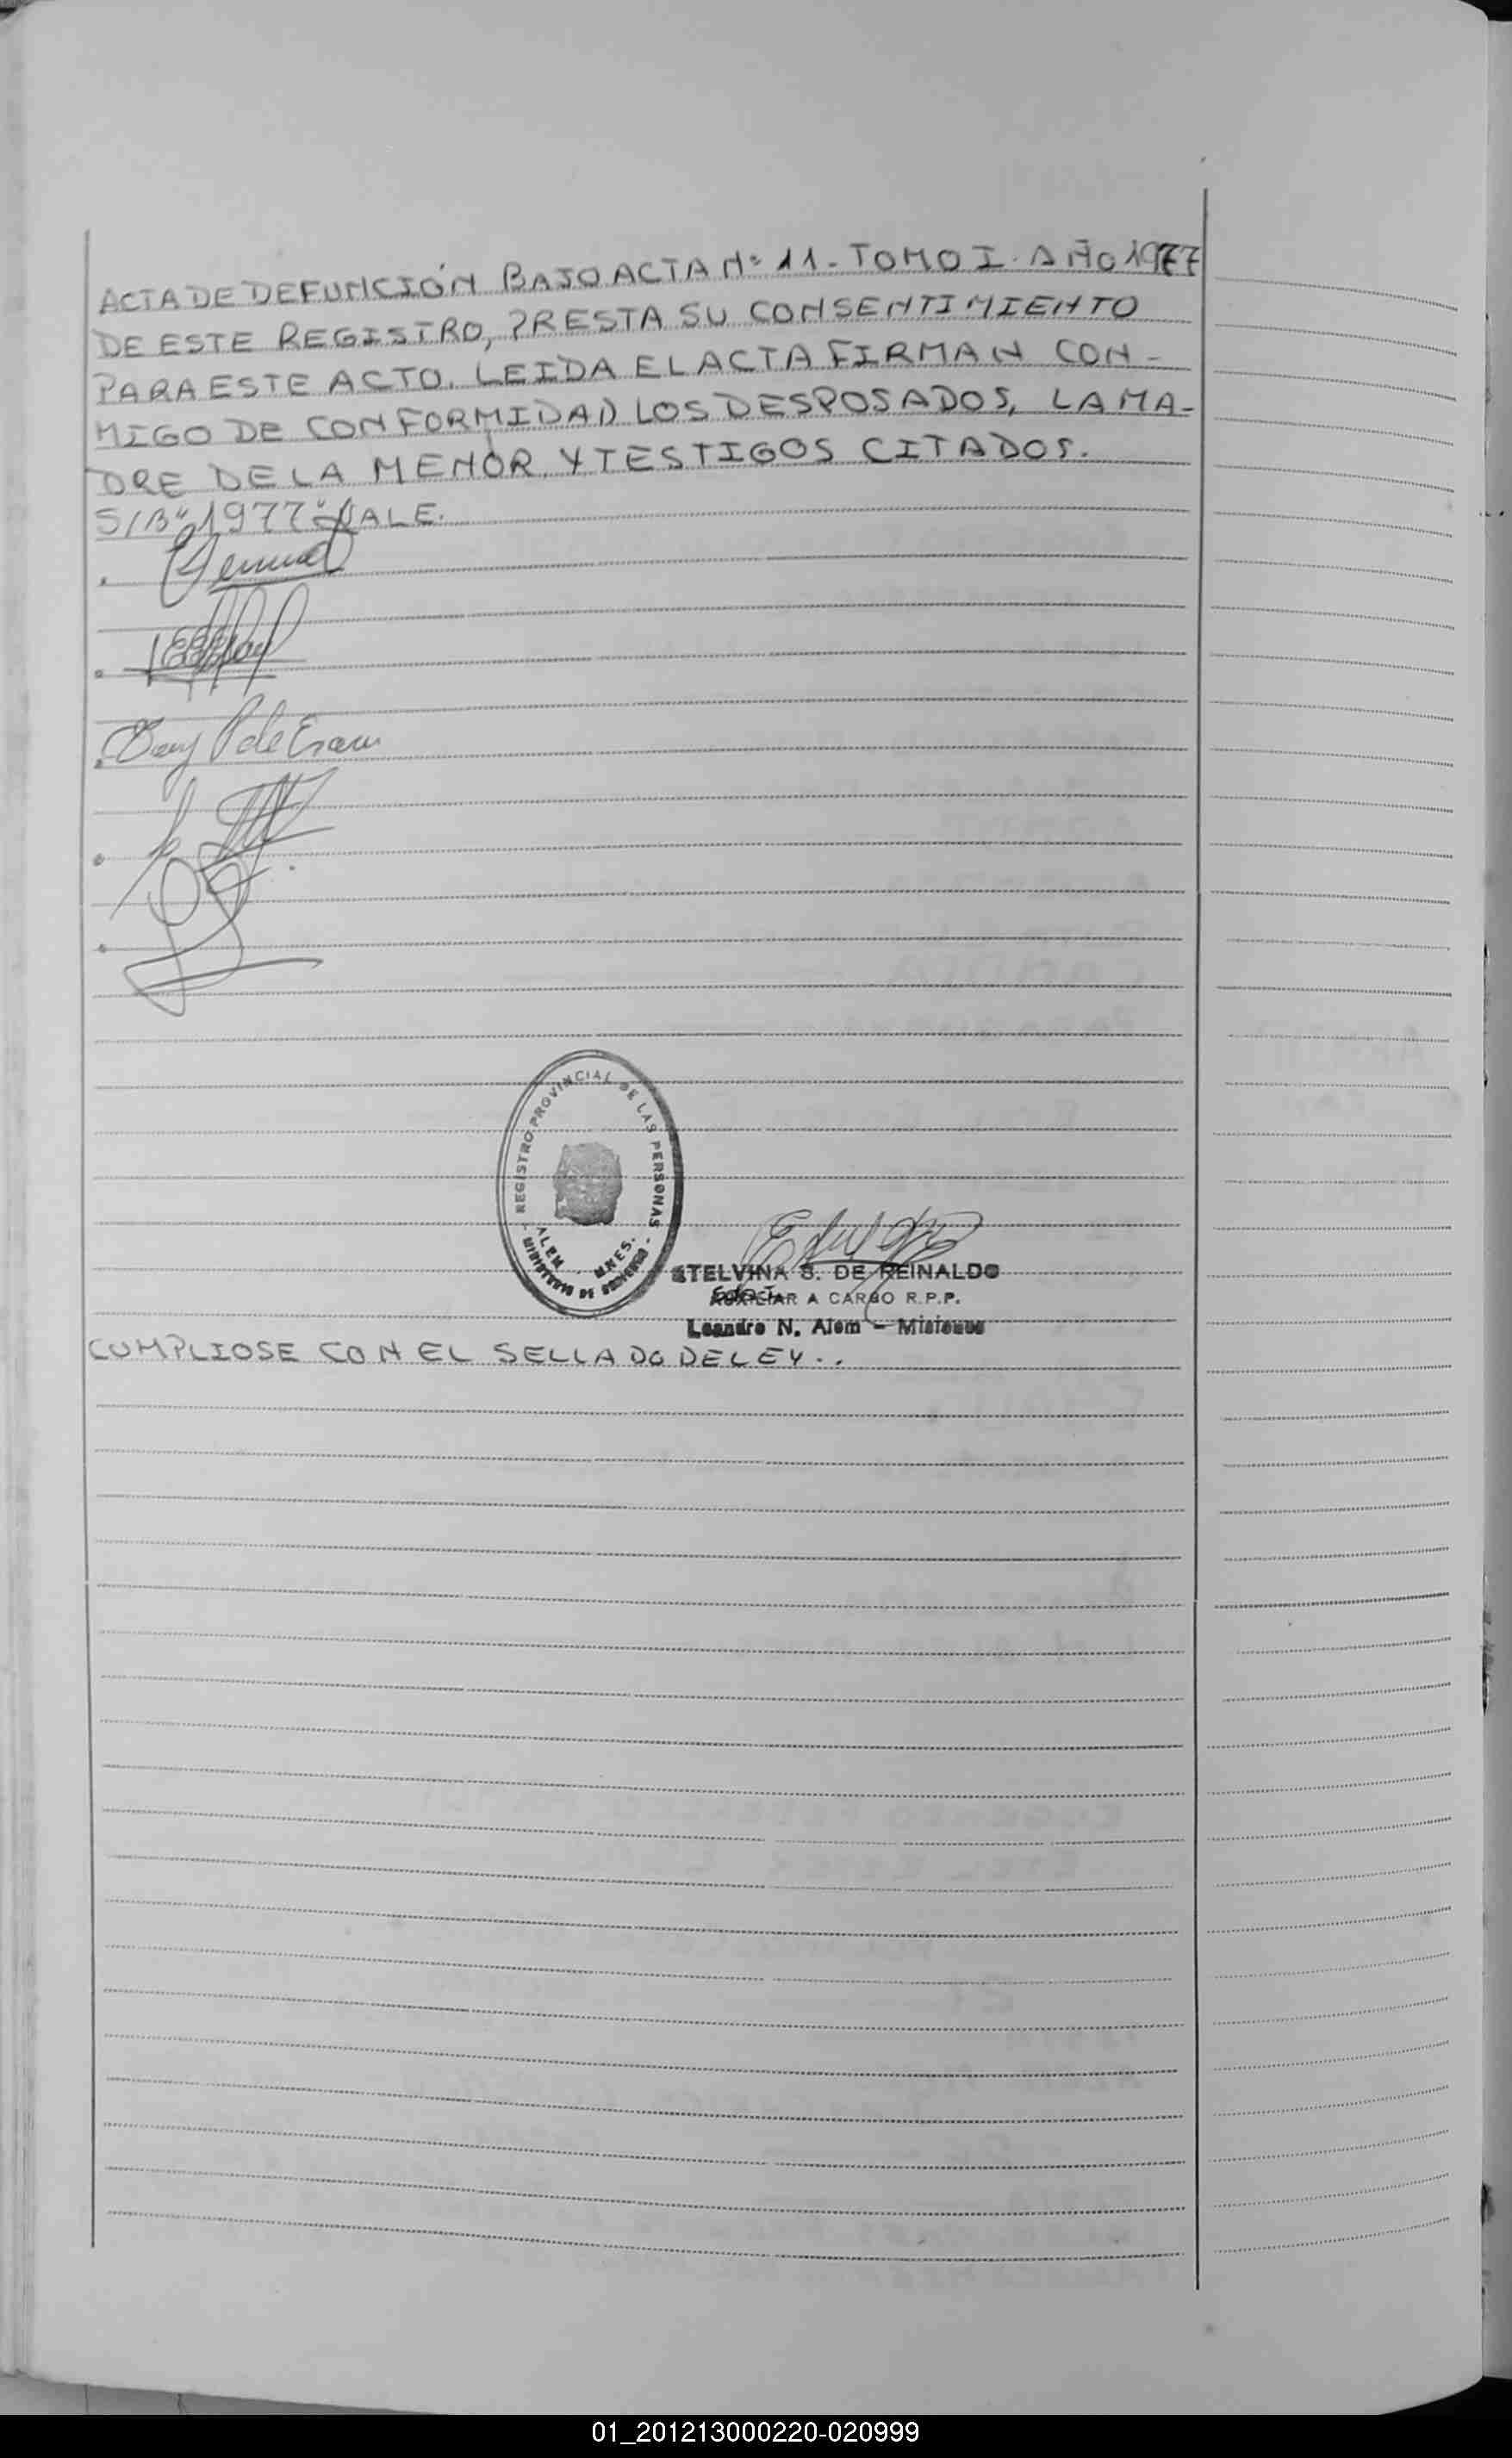 ACTA DE DEFUNCIÓN BAJO ACTA Nº 11 - TOMO I. AÑO 1977
DE ESTE REGISTRO, PRESTA SU CONSENTIMIENTO
PARA ESTE ACTO. LEIDA EL ACTA FIRMAN CON-
MIGO DE CONFORMIDAD LOS DESPOSADOS, LA MA-
DRE DE LA MENOR, Y TESTIGOS CITADOS.
S/B "1977" VALE.
REGISTRO PROVINCIAL DE LAS PERSONAS
ALEM - MNES.
MINISTERIO DE GOBIERNO
ETELVINA S. DE REINALDO
AUXILIAR A CARGO R.P.P.
Leandro N. Alem - Misiones
CUMPLIOSE CON EL SELLADO DE LEY..
01_201213000220-020999